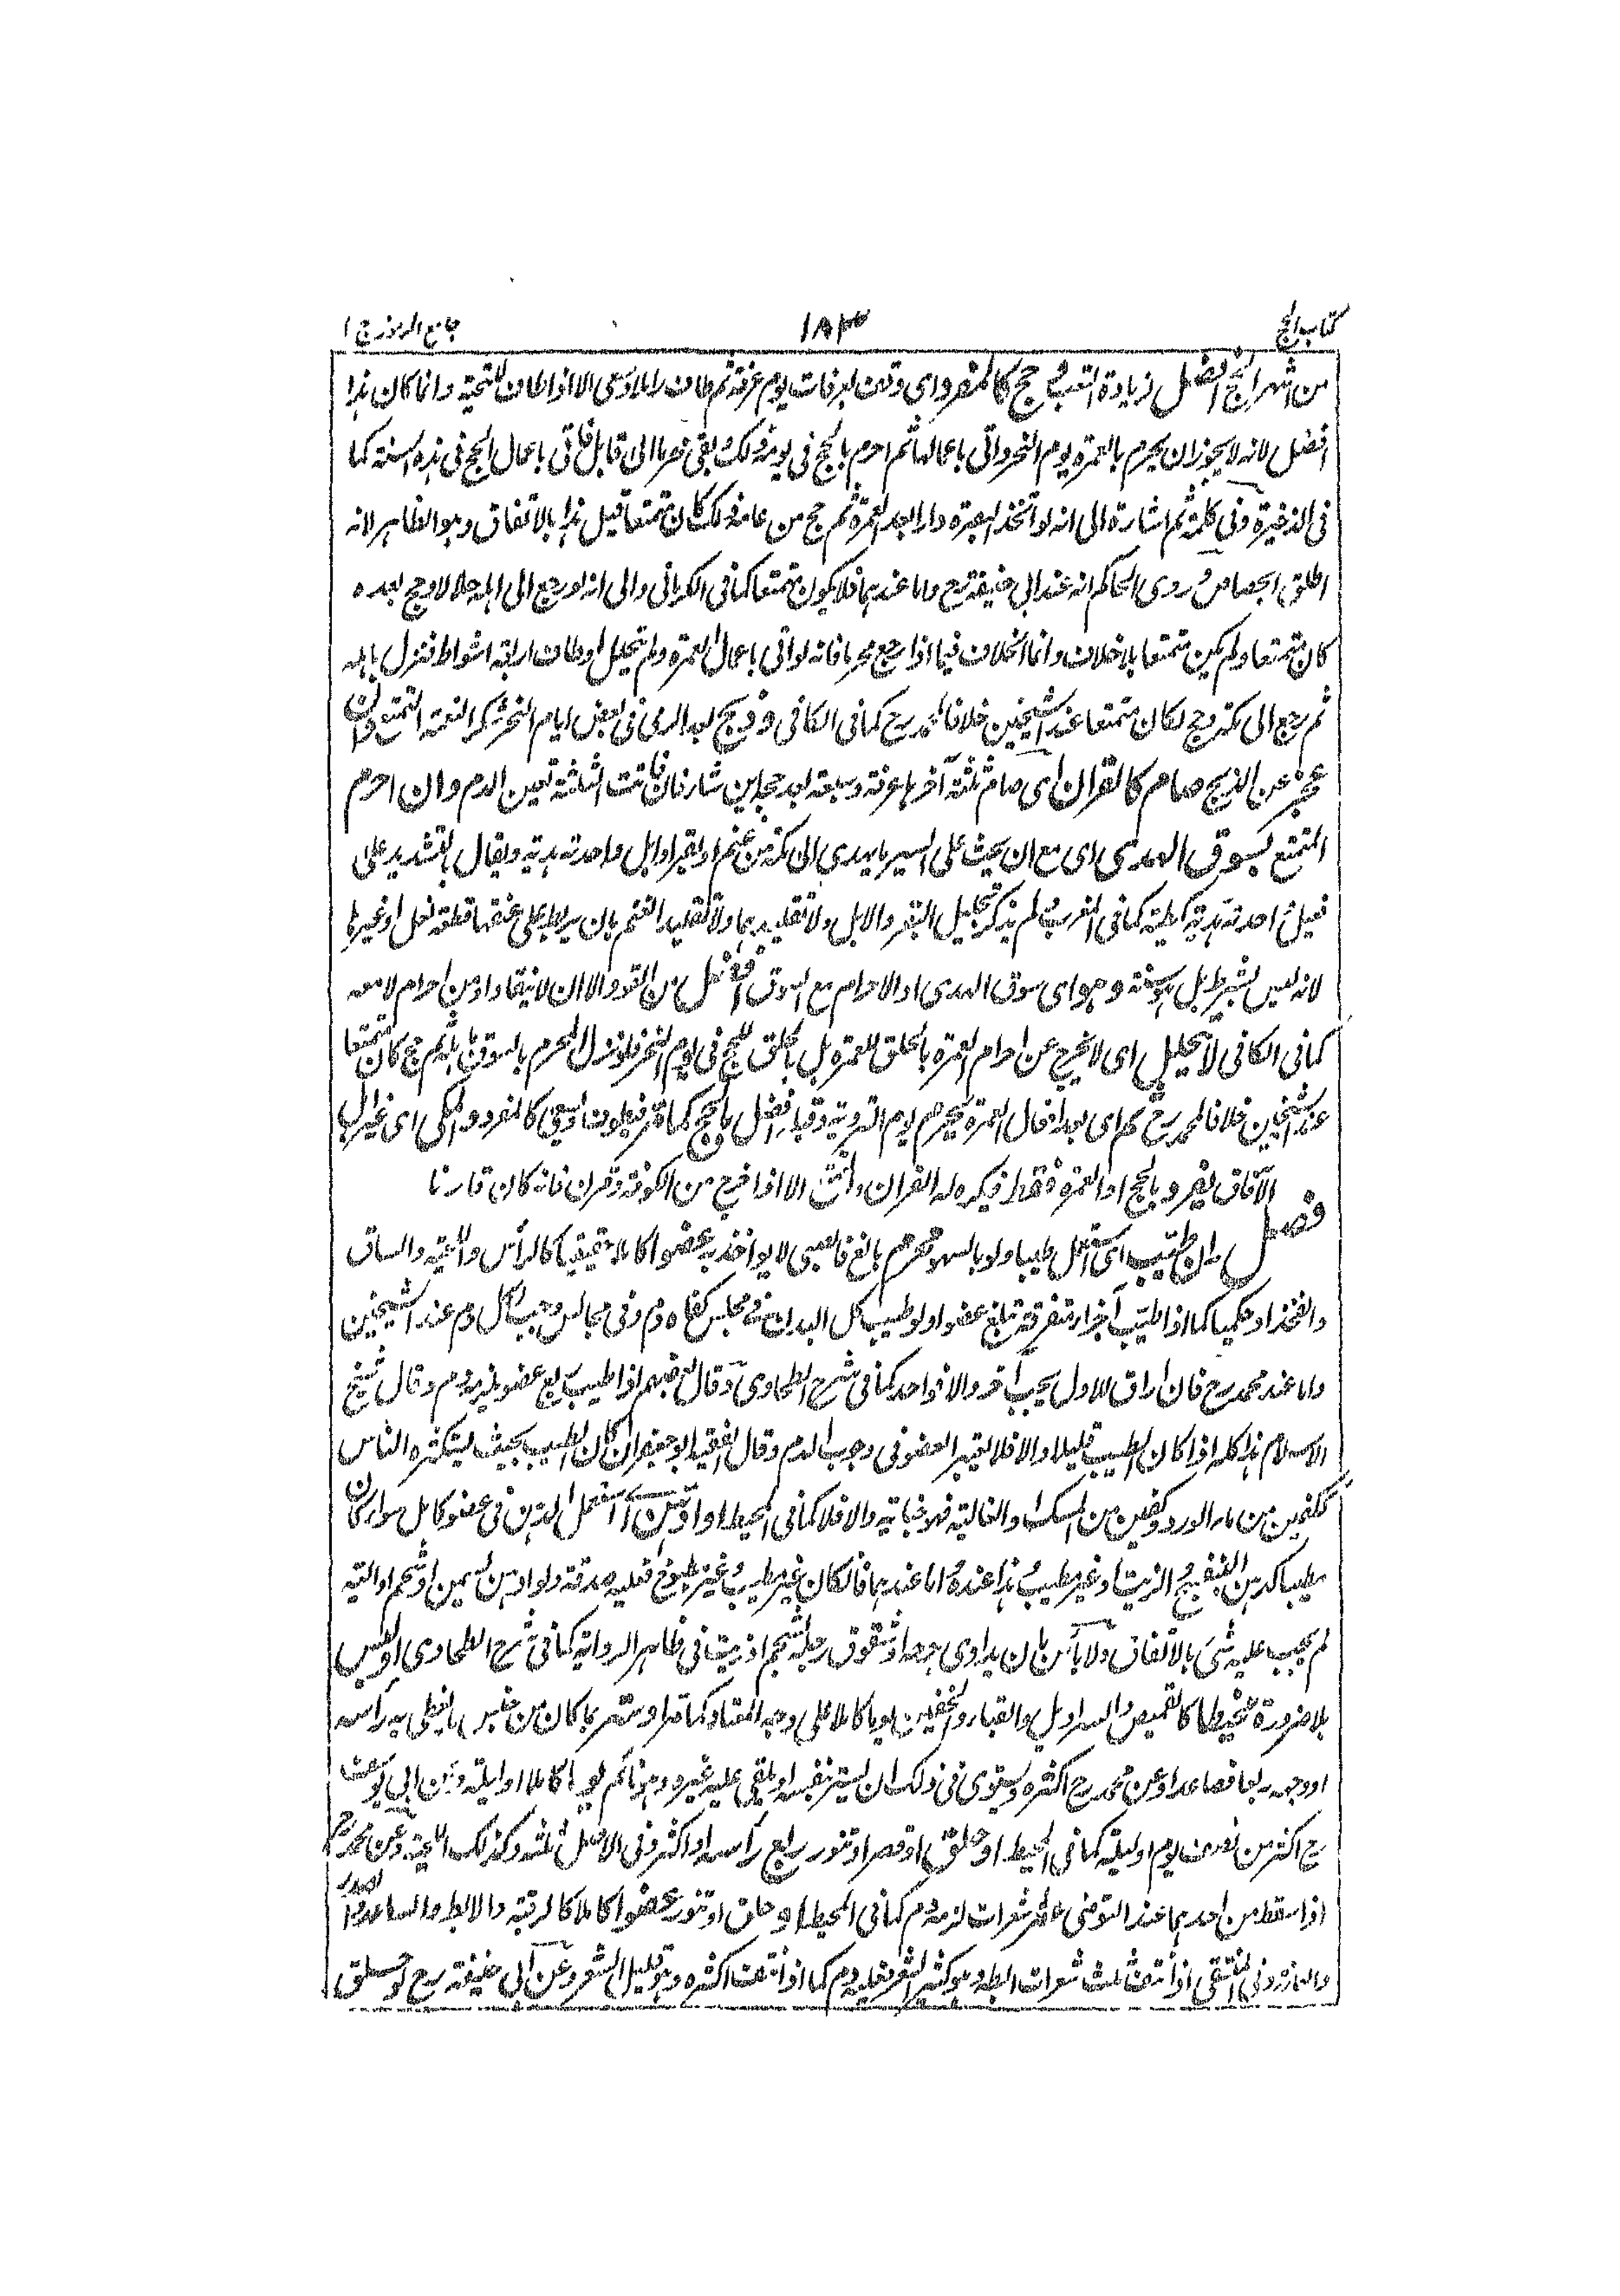 كتاب الحج ١٨٣ جامع الرموز ج ١
من اشهر الحج افضل لزيادة التعب و حج كالمفرد اى وقف بعرفات يوم عرفة ثم طاف را ملا و سعى الا اذا طاف للتحية وانما كان هذا
افضل لانه لا يجوز ان يحرم بالعمرة يوم النحر واتى باعمالها ثم احرم بالحج فى يومه ذلك و بقى محرما الى قابل فاتى باعمال الحج فى هذه السنة كما
فى الذخيرة وفى كلمة ثم اشارة الى انه لو اتخذ البصرة دارا بعد العمرة ثم حج من عامه ذلك كان متمتعا قيل هذا بالاتفاق وهو الظاهر لانه
اطلق الجصاص وروى الحاكم انه عند ابى حنيفة رح واما عندهما فلا يكون متمتعا كما فى الكرمانى والى انه لو رجع الى اهله حلالا و حج بعده
كان متمتعا ولم يكن متمتعا بلا خلاف وانما الخلاف فيما اذا رجع محرما فانه لو اتى باعمال العمرة ولم يتحلل او طاف اربعة اشواط فنزل باهله
ثم رجع الى مكة وحج لكان متمتعا عند الشيخين خلافا لمحمد رح كما فى الكافى و ذبح بعد الرمى فى بعض ايام النحر شكرا لنعمة التمتع وان
عجز عن الذبح صام كالقران اى صام ثلثة آخرها عرفة وسبعة بعد حجه اين شاء فان فاتت الثلثة تعين الدم وان احرم
المتمتع بسوق الهدى اى مع ان يحث على السير ما يهدى الى مكة من غنم او بقر او ابل واحدته هدية ويقال بالتشديد على
فعيل واحدته هدية كمطية كما فى المغرب و لم يذكر تجليل البقر والابل ولا تقليدهما ولا تقليد الغنم بان يربط على عنقها قطعة نعل او غيرها
لانه ليس بشرط بل سنة وهو اى سوق الهدى او الاحرام مع السوق افضل من القود الا ان لا ينقاد او من احرام لا معه
كما فى الكافى لا يتحلل اى لا يخرج عن احرام العمرة بالحلق للعمرة بل بالحلق للحج فى يوم النحر فلو نزل المحرم بالسوق باهله ثم حج كان متمتعا
عند الشيخين خلافا لمحمد رح ثم اى بعد افعال العمرة يحرم يوم التروية وقبله افضل بالحج كما مر فيطوف ويسعى كالمفرد والمكى اى غير اهل
الآفاق يفرد بالحج او العمرة فقط ويكره له القران والتمتع الا اذا خرج من الكوفة وقرن فانه كان قارنا
فصل وان طيب اى استعمل طيبا ولو بالسهو محرم بالغ فالصبى لا يواخذ به عضوا كاملا حقيقيا كالرأس واللحية والساق
والفخذ او حكميا كما اذا طيب اجزاء متفرقة تبلغ عضوا ولو طيب كل البدن فى مجلس كفاه دم وفى مجالس وجب لكل دم عند الشيخين
واما عند محمد رح فان اراق للاول يجب آخر والا فواحد كما فى شرح الطحاوى وقال بعضهم اذا طيب ربع عضو يلزمه دم وقال شيخ
الاسلام هذا كله اذا كان الطيب قليلا والا فلا يعتبر العضو فى وجوب الدم وقال الفقيه ابو جعفر ان كان الطيب بحيث يستكثره الناس
ككفين من ماء الورد وكفين من المسك والغالية فهو جناية والا فلا كما فى المحيط او ادهن اى استعمل الدهن فى عضو كامل سواء كان
مطيبا كدهن البنفسج و الزيت او غير مطيب و هذا عنده واما عندهما فان كان غير مطيب وغير مطبوخ فعليه صدقة ولو ادهن بسمن او شحم او الية
لم يجب عليه شئ بالاتفاق ولا بأس بان يداوى جرحه او شقوق رجله بشحم او زيت فى ظاهر الرواية كما فى شرح الطحاوى او لبس
بلا ضرورة مخيطا كالقميص والسراويل والقباء والخفين يوما كاملا على وجه المعتاد كما مر او ستر بما كان من جنس ما يغطى به رأسه
او وجهه ربعا فصاعدا وعن محمد رح اكثره ويستوى فى ذلك ان يستر بنفسه او يلقى عليه غيره وهو نائم يوما كاملا او ليلة وعن ابى يوسف
رح اكثر من نصف يوم او ليلة كما فى المحيط او حلق او قصر او تنور ربع رأسه او اكثر وفى الاصل ثلثه وكذلك اللحية وعن محمد رح
اذا سقط من احدهما عند التوضى عشر شعرات لزمه دم كما فى المحيط او حلق او تنور عضوا كاملا كالرقبة والابط والساعد والصدر
والعانة وفى المنتقى اذا نتف ثلث شعرات ابطه وهو كثير الشعر فعليه دم كما اذا نتف اكثره وهو قليل الشعر وعن ابى حنيفة رح لو حلق